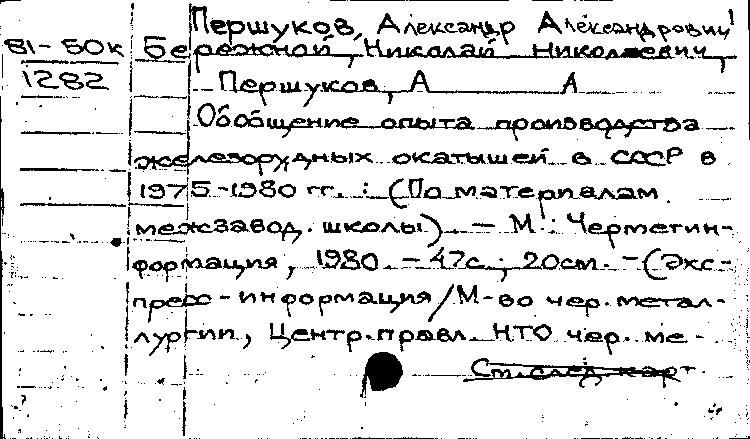 Першуков, Александр Александрович
81-50к Бережной, Николай Николаевич,
1282 Першуков, А А
Обобщение опыта производства
железорудных окатышей в СССР в
1975-1980 гг. : (По материалам
межзавод. школы). - М.: Черметин-
формация, 1980. - 47с.; 20см. - (Экс-
пресс-информация/М-во чер. метал-
лургии, Центр. правл. НТО чер. ме-
См. след. карт.